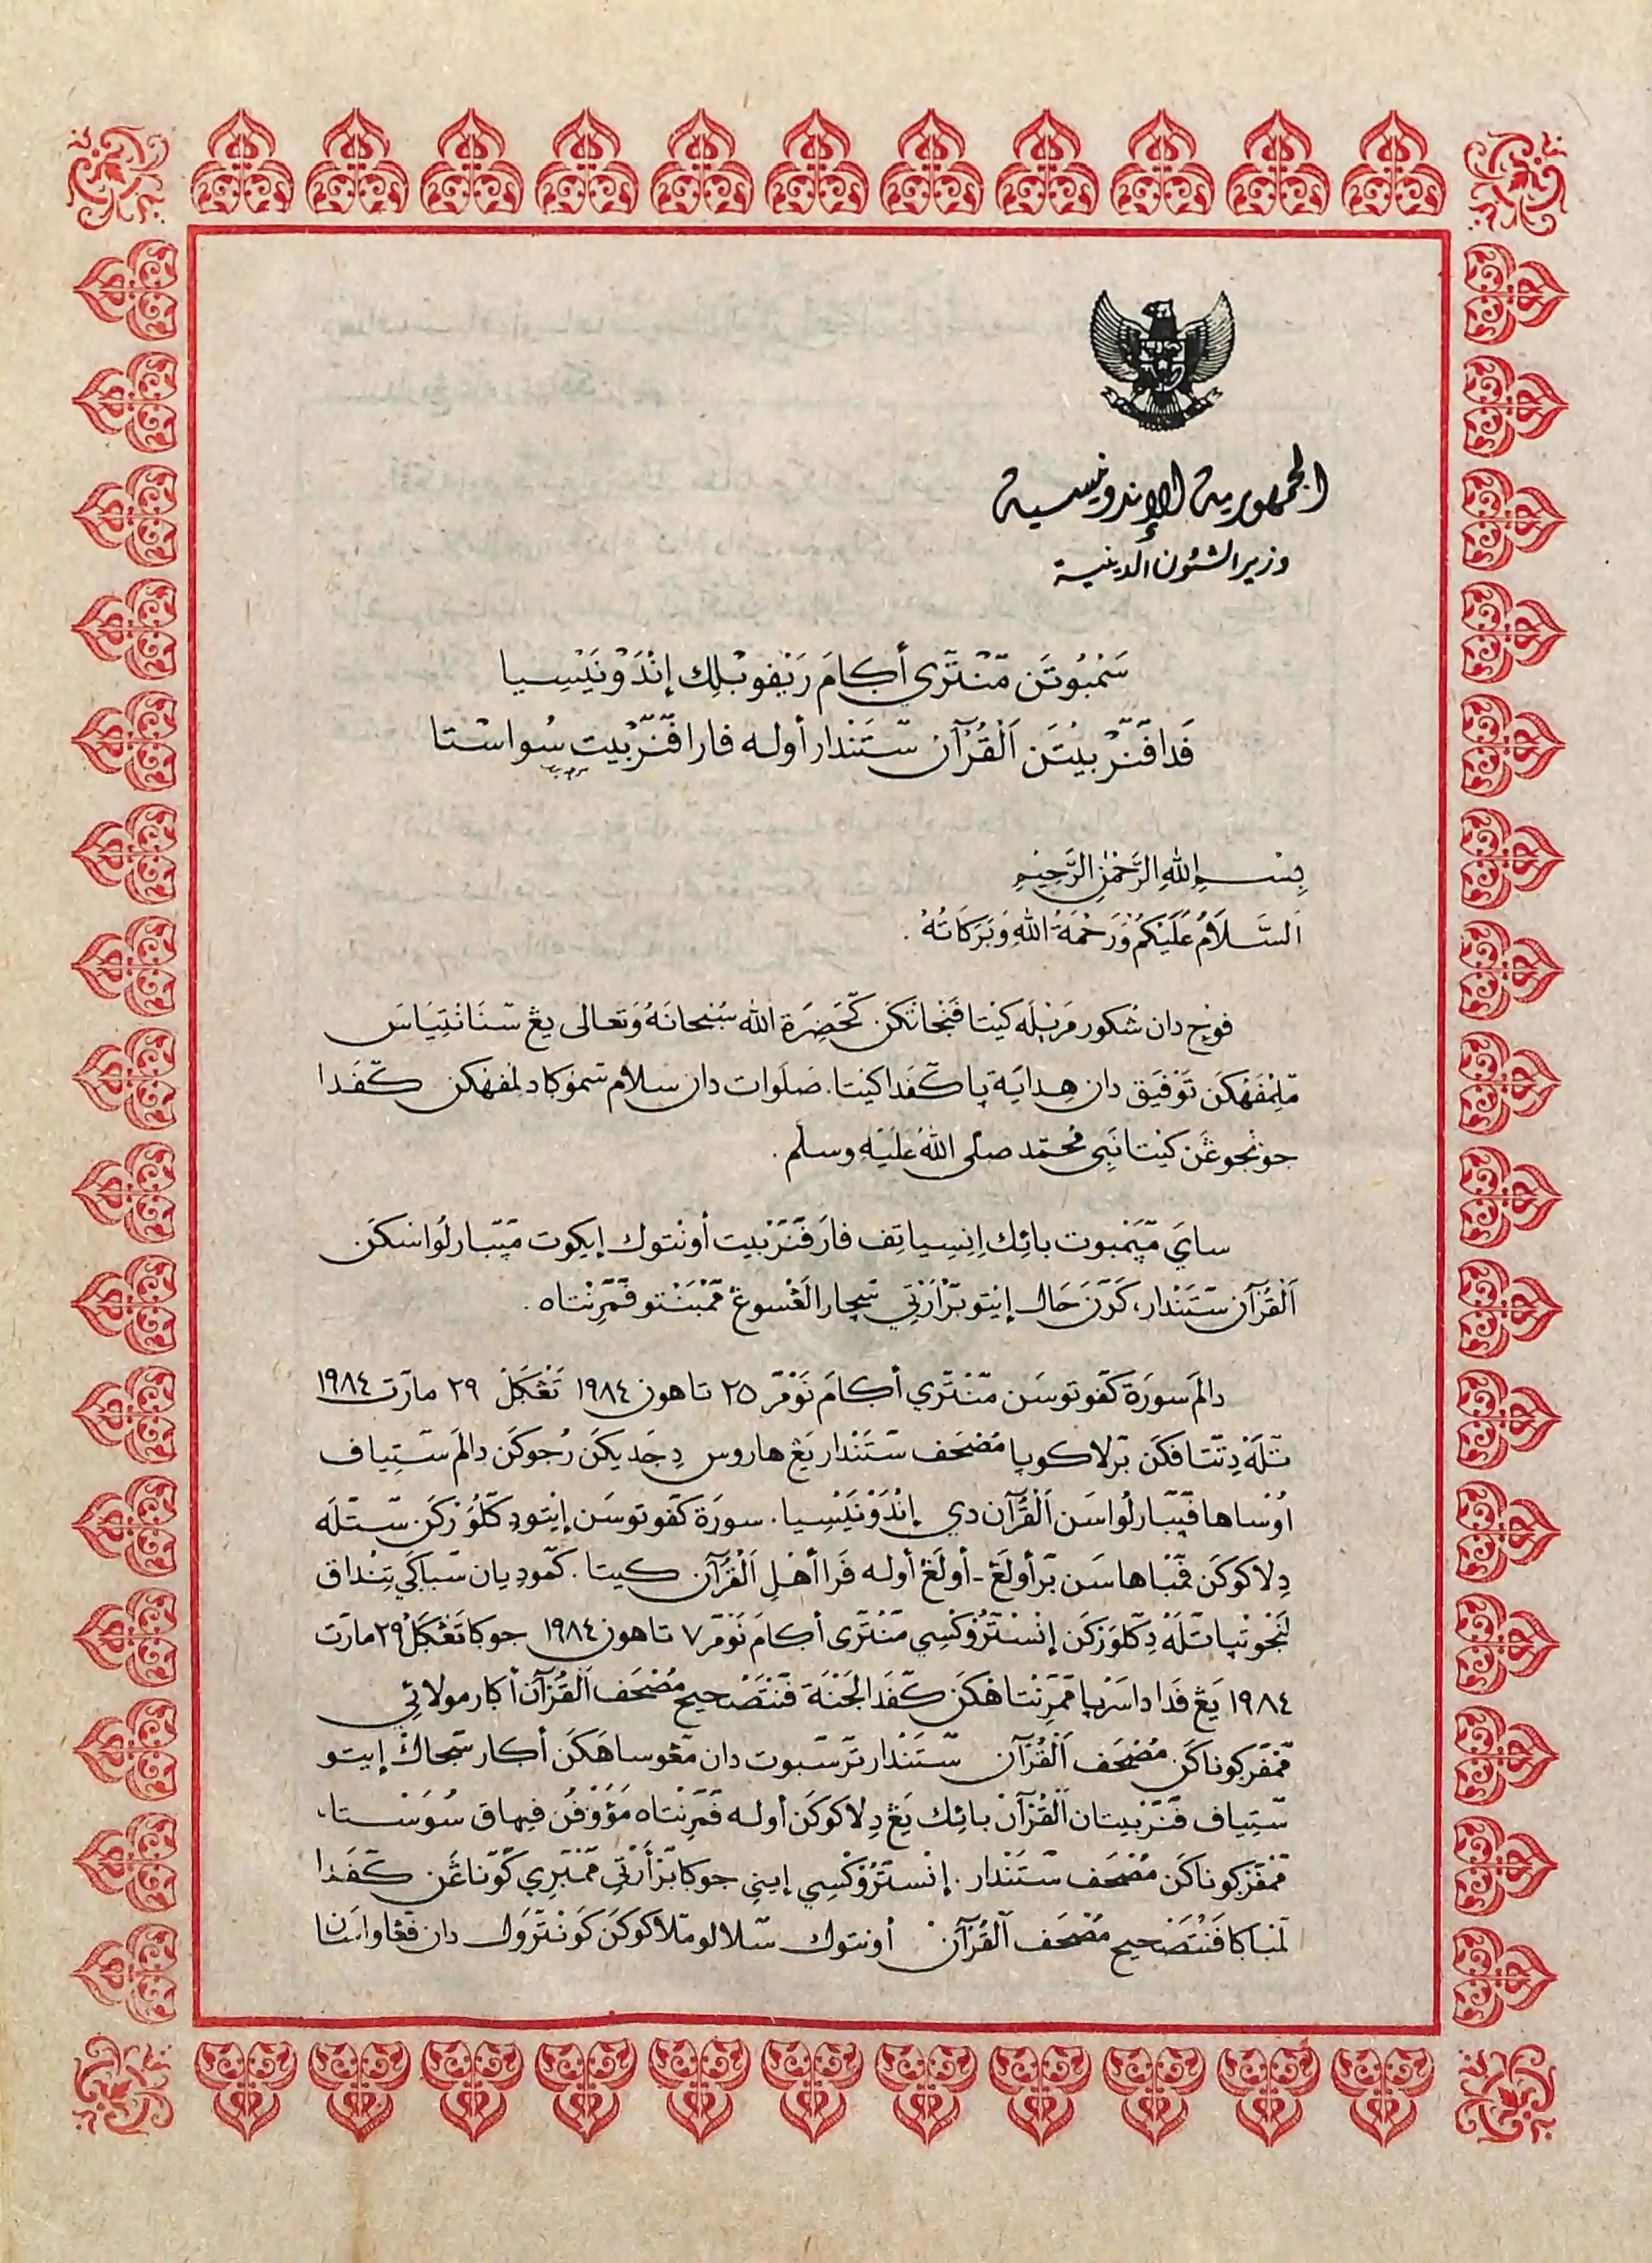 الجمهورية الإندونيسية
وزير الشئون الدينية
سَمْبُوتَن مّنْتّرِي أكَامَ رَيْفوبْلِك إنْدَوْنَيْسِيا
فَدا فّنّرْبِيْتَن اَلْقُرْآن سّتَنْدار أوله فارا فّنّرْبِيت سُواسْتا
بِسْمِ اللهِ الرَّحْمٰنِ الرَّحِيْمِ
اَلسَّلَامُ عَلَيْكُمْ وَرَحْمَةُ اللهِ وَبَرَكَاتُهُ .
فوجِ دان شُكور مَرِيْلَه كِيْتا فَنْجاتكَن كّحَضِرَة الله سُبْحانَهُ وَتعالى يڠ سّنَانْتِيَاسَ
مّلِمْفَهْكَن تَوْفِيق دان هِدايَة ڽا كّفَدا كيتا. صَلَوات دان سلام سّموكا دلمفهكن كّفَدا
جونْجوڠَن كِيْتا نَبِي مُحمّد صلى اللهُ عَلَيْهِ وسلم .
سايَ مّڽَمْبوت بائِك اِنِسِياتِف فارَ فّنّرْبيت أونْتوك إيكوت مّڽّبارلُواسكَن
اَلْقُرْآن سّتَنْدار، كَرّنَ حَال إيْتو بّرْأَرْتِي سّچارا لَڠْسوڠ مّمْبَنْتو فّمّرِنْتاه .
دالَم سورَة كّفوتوسَن مّنْتّري أكامَ نَوْمَر ٢٥ تاهون ١٩٨٤ تَڠْكَل ٢٩ مارَت ١٩٨٤
تّلَه دِتّتافكَن بّرلاكوڽا مُصْحَف سّتَنْدار يَڠ هاروس دِجَديكَن رُجوكَن دالَم سّتِياف
اُوْساها فّڽّبارلُواسَن اَلْقُرْآن دي إنْدَوْنَيْسِيا. سورَة كّفوتوسَن إيْتو دِكّلُوَرْكَن سّتّلَه
دِلاكوكَن فّمْباهاسَن بّرأولَڠ-أولَڠ أوله فَرا أهْلِ اَلْقُرْآن كيتا. كّمودِيان سّباكَي تِنْداق
لَنْجوتْڽا تّلَهْ دِكّلوَرْكَن إنْسْتْرُوْكْسِي مّنْتّرى أكامَ نَوْمَر ٧ تاهون ١٩٨٤ جوكا تَڠْكَل ٢٩ مارَت
١٩٨٤ يَڠ فَدا داسَرڽا مّمّرِنْتاهْكَن كّفَدا لَجْنَة فّنْتَصْحيح مُصْحَف اَلْقُرْآن أكار مولائي
مّمْفّرْكوناكَن مُصْحَف اَلْقُرْآن سّتَنْدار تّرسّبوت دان مّڠوساهَكَن أكار سّجاك إيتو
سّتِياف فّنّرْبيتان اَلْقُرْآن بائِك يَڠ دِلاكوكَن أوله فّمّرِنْتاه مَؤُوْفُن فيهاق سُوَسْتا،
مّمْفّرْكوناكَن مُصْحَف سّتَنْدار. إنْسْتْرُوْكْسِي إيني جوكا بّرْأَرْتِي مّمْبّرِي كّوّناڠَن كّفَدا
لّمْباكا فّنْتَصْحيح مُصْحَف اَلْقُرْآن أونتوك سّلالو مّلاكوكَن كَونْتْرَول دان فّڠاواسَان